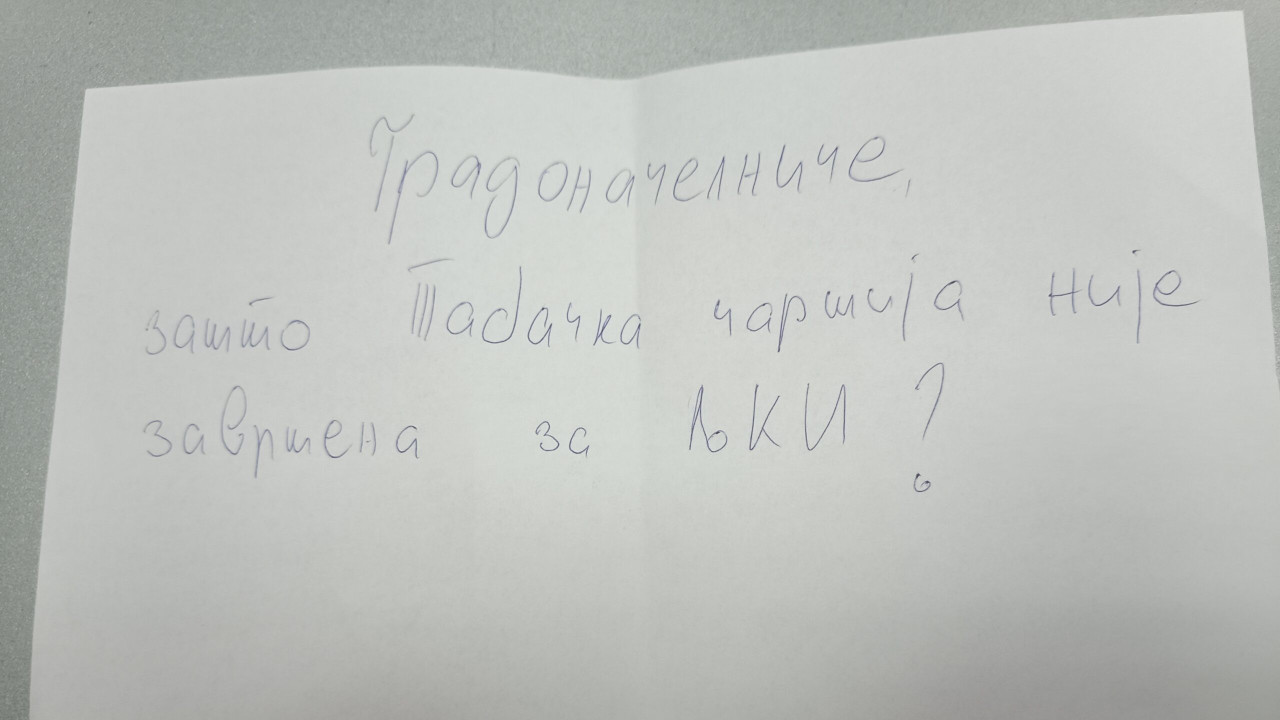 Градоначелниче,
зашто Табачка чаршија није
завршена за ЉКИ?